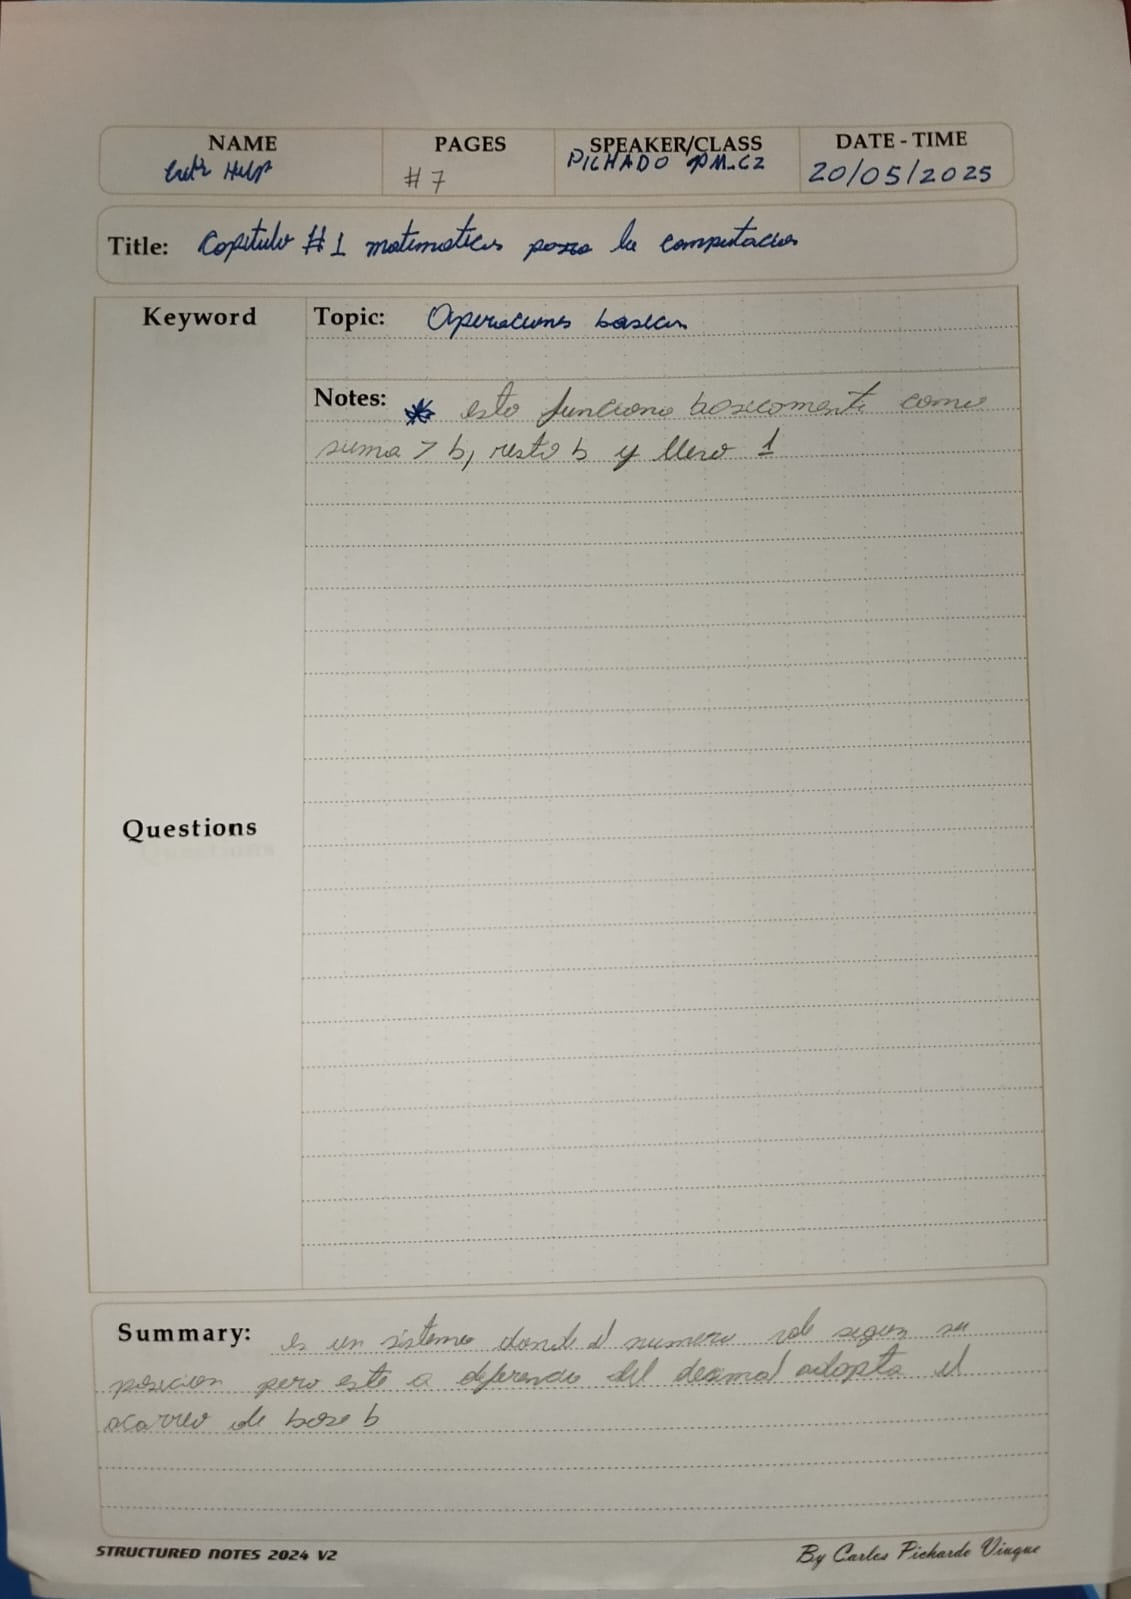 NAME
PAGES
SPEAKER/CLASS
DATE - TIME
Help
# 7
PICHADO PM.CZ
20/05/2025
Title: Capitulo #1 matematicas para la computacion
Keyword
Topic: Operaciones basicas
Notes: * esto funciona basicamente como
suma > b, resto b y llevo 1
Questions
Summary: es un sistema donde el numero vale segun su
posicion pero este a diferencia del decimal adopta el
acarreo de base b
STRUCTURED NOTES 2024 V2
By Carlos Pichardo Viuque